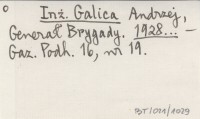 Inż. Galica Andrzej,
Generał Brygady. 1928... —
Gaz. Podh. 16, nr 19.
BJ/021/1029